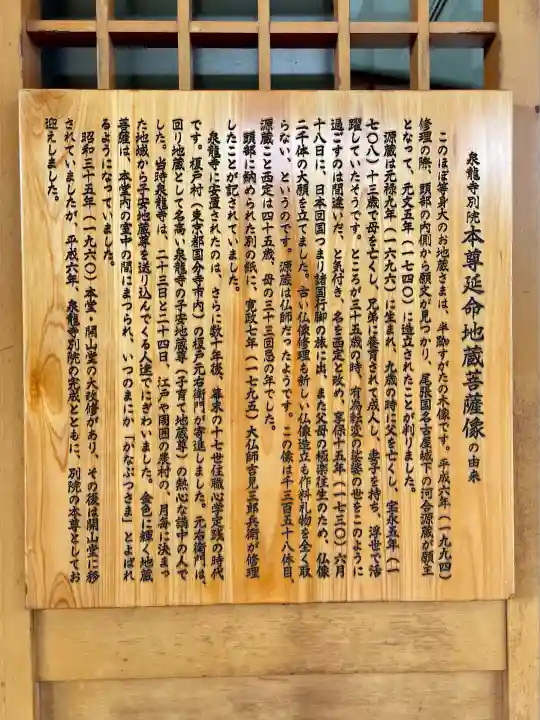 泉龍寺別院 本尊延命地蔵菩薩像の由来
このほぼ等身大のお地蔵さまは、半跏すがたの木像です。平成六年（一九九四）
修理の際、頭部の内側から願文が見つかり、尾張国名古屋城下の河合源蔵が願主
となって、元文五年（一七四〇）に造立されたことが判りました。
源蔵は元禄九年（一六九六）に生まれ、九歳の時に父を亡くし、宝永五年（一
七〇八）十三歳で母を亡くし、兄弟に養育されて成人し、妻子を持ち、浮世で活
躍していたそうです。ところが三十五歳の時、有為転変の娑婆の世をこのように
過ごすのは間違いだ、と気付き、名を西定と改め、享保十五年（一七三〇）六月
十八日に、日本回国つまり諸国行脚の旅に出、また父母の極楽往生のため、仏像
二千体の大願を立てました。古い仏像修理も新しい仏像造立も作料礼物を全く取
らない、というのです。源蔵は仏師だったようです。この像は千三百五十八体目、
源蔵こと西定は四十五歳、母の三十三回忌の年でした。
頭部に納められた別の紙に、寛政七年（一七九五）大仏師吉見三郎兵衛が修理
したことが記されていました。
泉龍寺に安置されたのは、さらに数十年後、幕末の十七世住職心学定践の時代
です。榎戸村（東京都国分寺市内）の榎戸元右衛門が寄進しました。元右衛門は、
回り地蔵として名高い泉龍寺の子安地蔵尊（子育て地蔵尊）の熱心な講中の人で
した。当時泉龍寺は、二十三日と二十四日、江戸や周囲の農村の、月毎に決まっ
た地域から子安地蔵尊を送り込んでくる人達でにぎわいました。金色に輝く地蔵
菩薩は、本堂内の室中の間にまつられ、いつのまにか「かなぶつさま」とよばれ
るようになっていました。
昭和三十五年（一九六〇）本堂・開山堂の大改修があり、その後は開山堂に移
されていましたが、平成六年、泉龍寺別院の完成とともに、別院の本尊としてお
迎えしました。